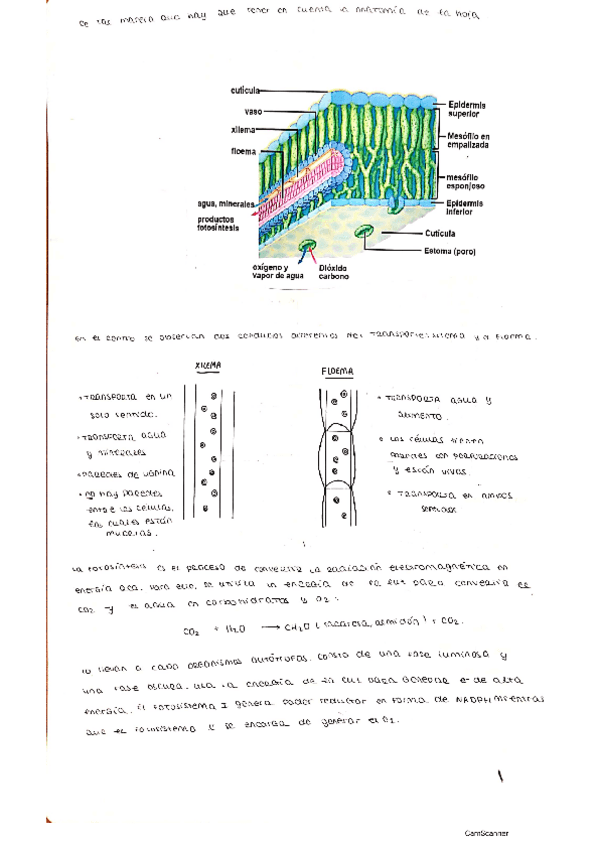 que hay que tener en cuenta la anatomía de la hoja
cutícula
vaso
xilema
floema
agua, minerales
productos
fotosíntesis
oxígeno y
Vapor de agua
Dióxido
carbono
Epidermis
superior
Mesófilo en
empalizada
mesófilo
esponjoso
Epidermis
inferior
Cutícula
Estoma (poro)
en el centro se observan dos conductos del transporte: xilema y
XILEMA
• TRANSPORTA en un
solo sentido.
• TRANSPORTA AGUA
y minerales
• PAREDES de
• no hay paredes
entre las células,
las cuales están
muertas.
FLOEMA
• TRANSPORTA agua y
alimento.
• Las células tienen
paredes con perforaciones
y están vivas.
• TRANSPORTA en ambos
sentidos
La fotosíntesis es el proceso de convertir la radiación electromagnética en
energía Para ello, se utiliza la energía de sol para convertir el
CO2 y el agua en carbohidratos y O2:
CO2 + H2O → CH2O ( sacarosa, almidón ) +
lo llevan a cabo organismos autótrofos. Consta de una fase luminosa y
una fase oscura. la energía de sol para generar e- de alta
energía. El fotosistema I genera poder reductor en forma de NADPH mientras
que el fotosistema II se encarga de generar el O2.
1
CamScanner